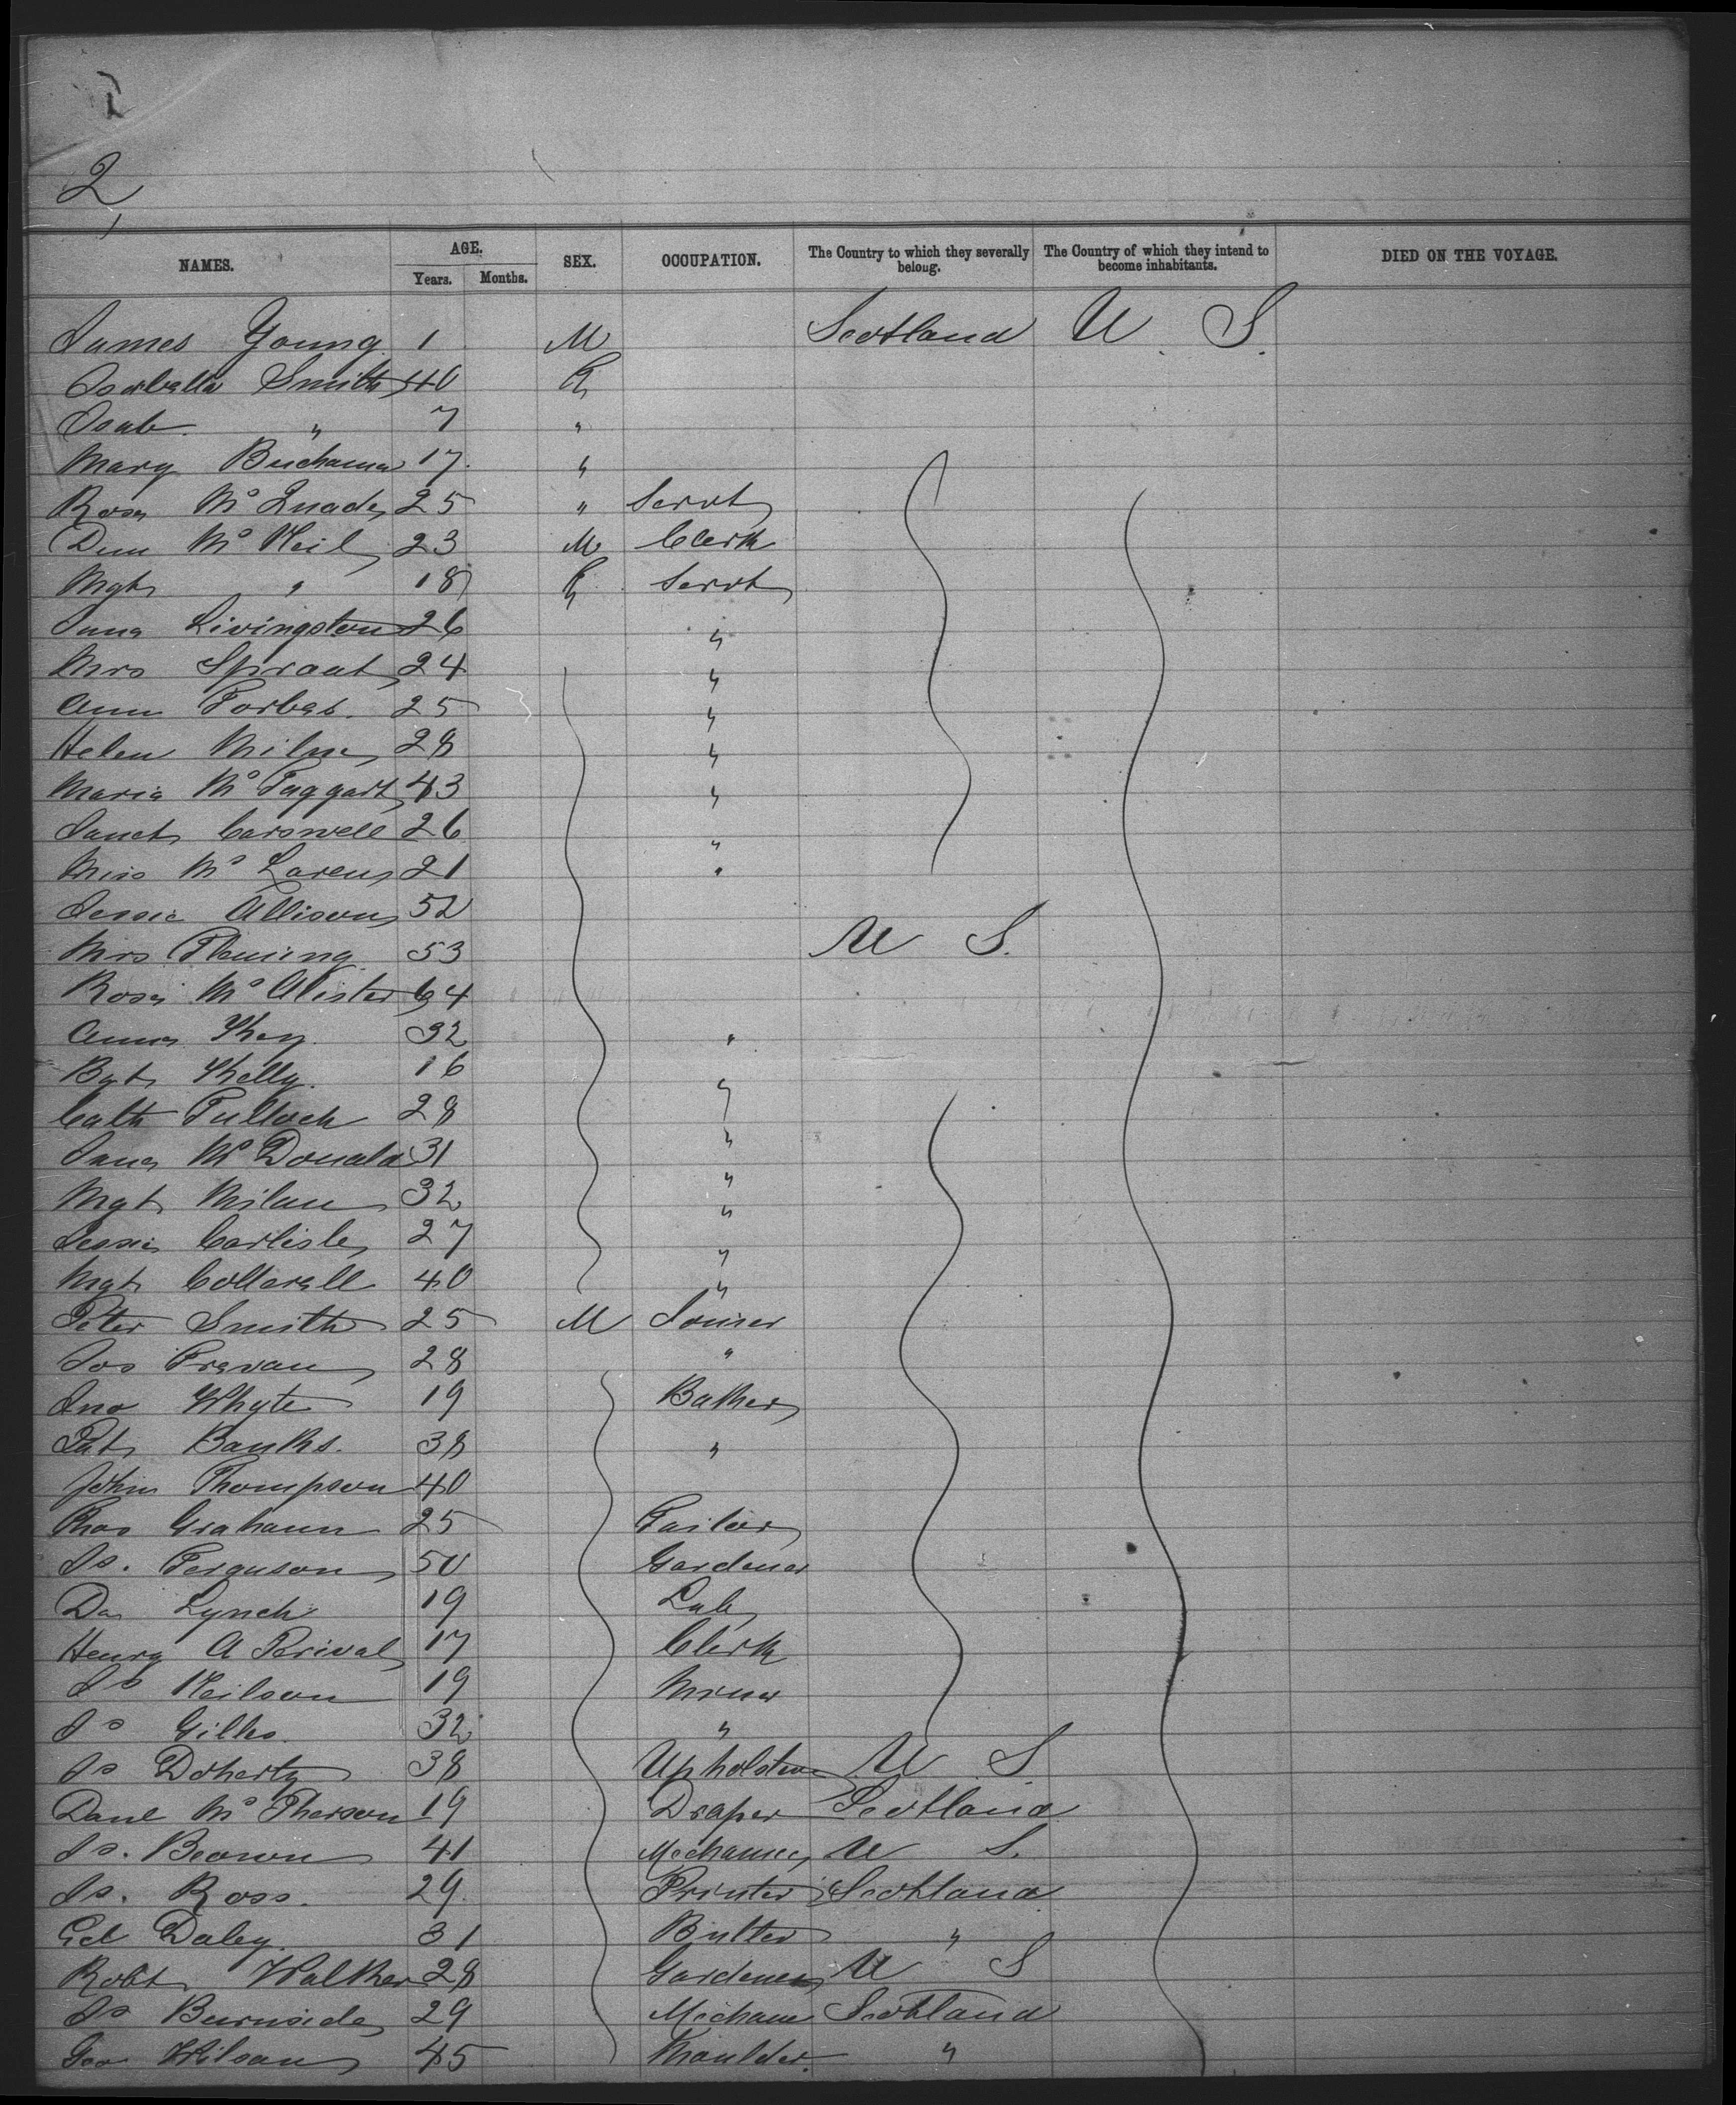 2
NAMES. AGE. Years. Months. SEX. OCCUPATION. The Country to which they severally belong. The Country of which they intend to become inhabitants. DIED ON THE VOYAGE.
James Young 1 M Scotland U. S.
Isabella Smith 40 F
Isab. " 7 "
Mary Buchanan 17 "
Rosa McQuade 25 " Servt
Dun McNeil 23 M Clerk
Mgt " 18 F Servt
Jane Livingston 26 "
Mrs Sproat 24 "
Ann Forbes. 25 "
Helen Milne 28 "
Maria McTaggart 43 "
Janet Carswell 26 "
Miss McLaren 21 "
Jessie Allison 52
Mrs Fleming 53 U S.
Rose McAlister 64
Annie 32 "
Bgt Kelly. 16 "
Cath Tulloch 28 "
Jane McDonald 31 "
Mgt Milan 32 "
Jessie Carlisle 27 "
Mgt Cotterall 40 "
Peter Smith 25 M Joiner
Jos 28 "
Jno Whyte 19 Baker
Pat Banks. 38 "
John Thompson 40
Thos Graham 25 Tailor
Js. Ferguson 50 Gardener
Da Lynch 19 Lab
Henry A Perival 17 Clerk
Js Neilson 19 Miner
Js Gilles. 32 "
Js Doherty 38 Upholsterer U S.
Danl McPherson 19 Draper Scotland
Js. Brown 41 Mechanic U S.
Js. Ross. 29. Printer Scotland
Daley 31 Butler "
Robt Walker 28 Gardener U S
Js Burnside 29 Mechanic Scotland
Geo Wilson 45 Moulder. "